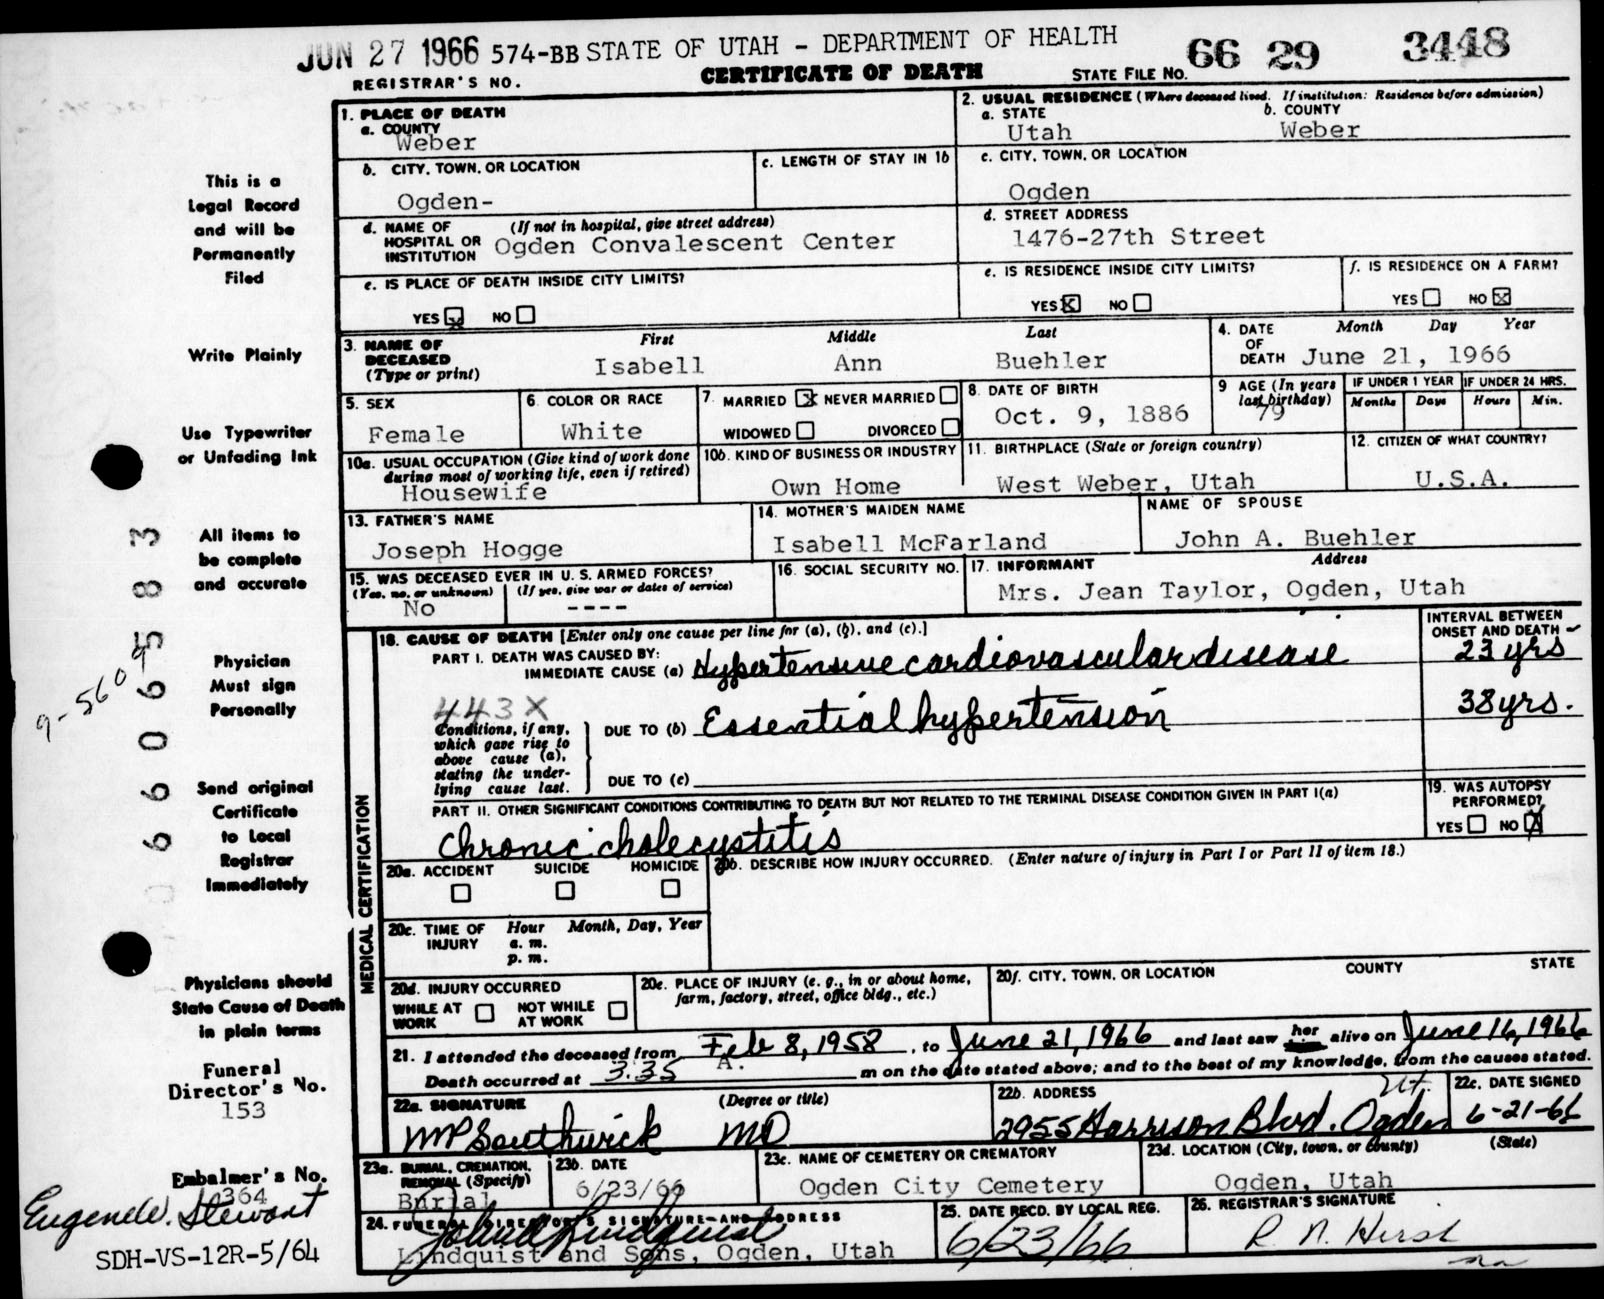 JUN 27 1966 574-BB STATE OF UTAH - DEPARTMENT OF HEALTH 66 29 3448
REGISTRAR'S NO. CERTIFICATE OF DEATH STATE FILE NO.
1. PLACE OF DEATH
a. COUNTY
Weber
2. USUAL RESIDENCE (Where deceased lived. If institution: Residence before admission)
a. STATE b. COUNTY
Utah Weber
b. CITY, TOWN, OR LOCATION
Ogden-
c. LENGTH OF STAY IN 1b
c. CITY, TOWN, OR LOCATION
Ogden
d. NAME OF HOSPITAL OR INSTITUTION (If not in hospital, give street address)
Ogden Convalescent Center
d. STREET ADDRESS
1476-27th Street
e. IS PLACE OF DEATH INSIDE CITY LIMITS?
YES NO
e. IS RESIDENCE INSIDE CITY LIMITS?
YES NO
f. IS RESIDENCE ON A FARM?
YES NO
3. NAME OF DECEASED (Type or print)
First Middle Last
Isabell Ann Buehler
4. DATE OF DEATH Month Day Year
June 21, 1966
5. SEX
Female
6. COLOR OR RACE
White
7. MARRIED NEVER MARRIED
WIDOWED DIVORCED
8. DATE OF BIRTH
Oct. 9, 1886
9 AGE (In years last birthday)
79
IF UNDER 1 YEAR IF UNDER 24 HRS.
Months Days Hours Min.
10a. USUAL OCCUPATION (Give kind of work done during most of working life, even if retired)
Housewife
10b. KIND OF BUSINESS OR INDUSTRY
Own Home
11. BIRTHPLACE (State or foreign country)
West Weber, Utah
12. CITIZEN OF WHAT COUNTRY?
U.S.A.
13. FATHER'S NAME
Joseph Hogge
14. MOTHER'S MAIDEN NAME
Isabell McFarland
NAME OF SPOUSE
John A. Buehler
15. WAS DECEASED EVER IN U. S. ARMED FORCES?
(Yes, no, or unknown) (If yes, give war or dates of service)
No ----
16. SOCIAL SECURITY NO.
17. INFORMANT Address
Mrs. Jean Taylor, Ogden, Utah
MEDICAL CERTIFICATION
18. CAUSE OF DEATH [Enter only one cause per line for (a), (b), and (c).]
INTERVAL BETWEEN ONSET AND DEATH
PART I. DEATH WAS CAUSED BY:
IMMEDIATE CAUSE (a) Hypertensive cardiovascular disease 23 yrs
443X
Conditions, if any, which gave rise to above cause (a), stating the underlying cause last.
DUE TO (b) Essential hypertension 38 yrs.
DUE TO (c)
PART II. OTHER SIGNIFICANT CONDITIONS CONTRIBUTING TO DEATH BUT NOT RELATED TO THE TERMINAL DISEASE CONDITION GIVEN IN PART I(a)
Chronic cholecystitis
19. WAS AUTOPSY PERFORMED?
YES NO X
20a. ACCIDENT SUICIDE HOMICIDE
20b. DESCRIBE HOW INJURY OCCURRED. (Enter nature of injury in Part I or Part II of item 18.)
20c. TIME OF INJURY Hour Month, Day, Year
a. m.
p. m.
20d. INJURY OCCURRED
WHILE AT WORK NOT WHILE AT WORK
20e. PLACE OF INJURY (e. g., in or about home, farm, factory, street, office bldg., etc.)
20f. CITY, TOWN, OR LOCATION COUNTY STATE
21. I attended the deceased from Feb 8, 1958, to June 21, 1966 and last saw her alive on June 16, 1966
Death occurred at 3:35 A. m on the date stated above; and to the best of my knowledge, from the causes stated.
22a. SIGNATURE (Degree or title)
MP Southwick MD
22b. ADDRESS
2955 Harrison Blvd. Ogden Ut.
22c. DATE SIGNED
6-21-66
23a. BURIAL, CREMATION, REMOVAL (Specify)
Burial
23b. DATE
6/23/66
23c. NAME OF CEMETERY OR CREMATORY
Ogden City Cemetery
23d. LOCATION (City, town, or county) (State)
Ogden, Utah
24. FUNERAL DIRECTOR'S SIGNATURE AND ADDRESS
Lindquist and Sons, Ogden, Utah
25. DATE RECD. BY LOCAL REG.
6/23/66
26. REGISTRAR'S SIGNATURE
This is a
Legal Record
and will be
Permanently
Filed
Write Plainly
Use Typewriter
or Unfading Ink
All items to
be complete
and accurate
Physician
Must sign
Personally
Send original
Certificate
to Local
Registrar
Immediately
Physicians should
State Cause of Death
in plain terms
Funeral
Director's No.
153
Embalmer's No.
364
Eugene W. Stewart
SDH-VS-12R-5/64
9-5609
66 06583